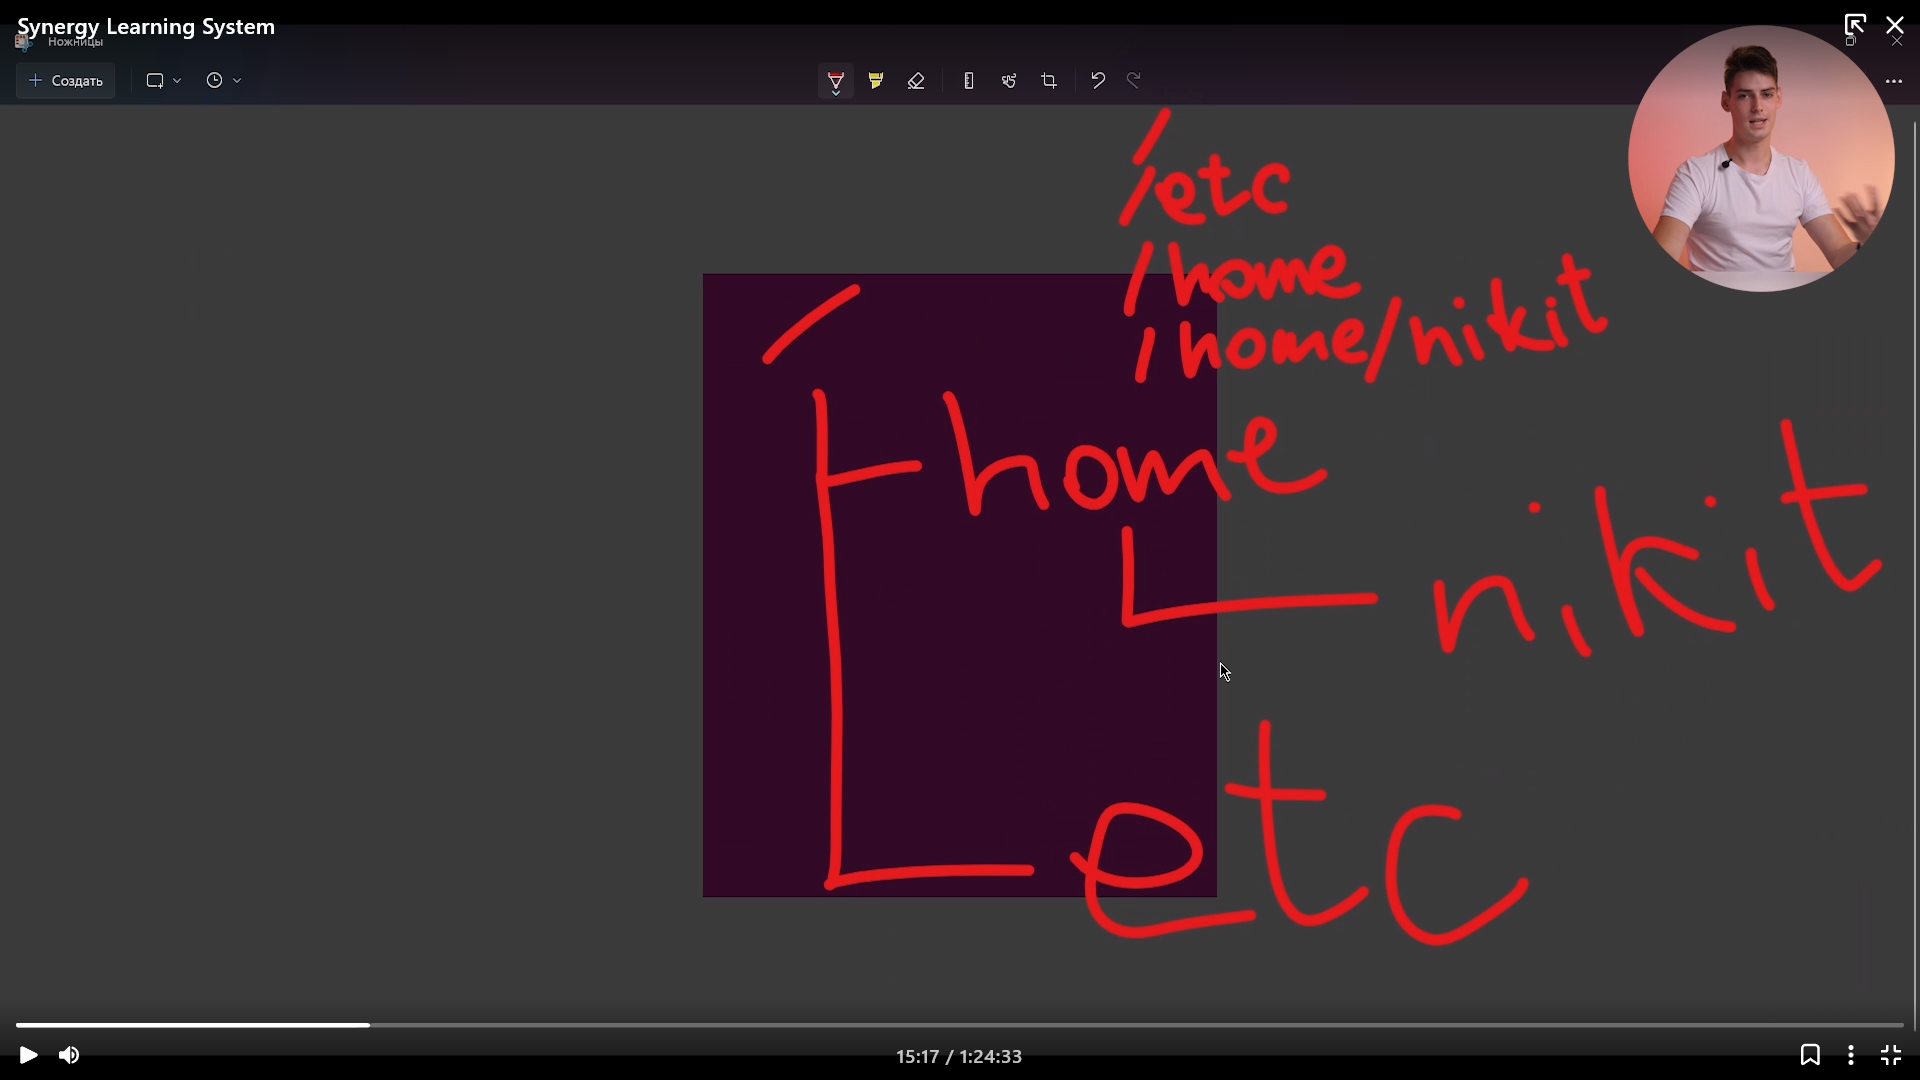 Synergy Learning System
Ножницы
Создать
/
/etc
/home
/home/nikit
/
home
nikit
etc
15:17 / 1:24:33